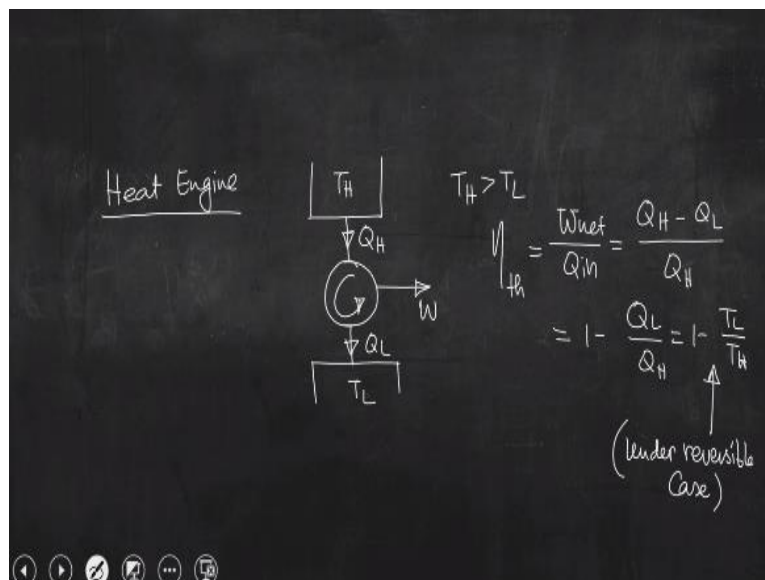 Heat Engine
T_H
Q_H
W
Q_L
T_L
T_H > T_L
η_th = Wnet/Qin = (Q_H - Q_L)/Q_H
= 1 - Q_L/Q_H = 1 - T_L/T_H
(under reversible
Case)